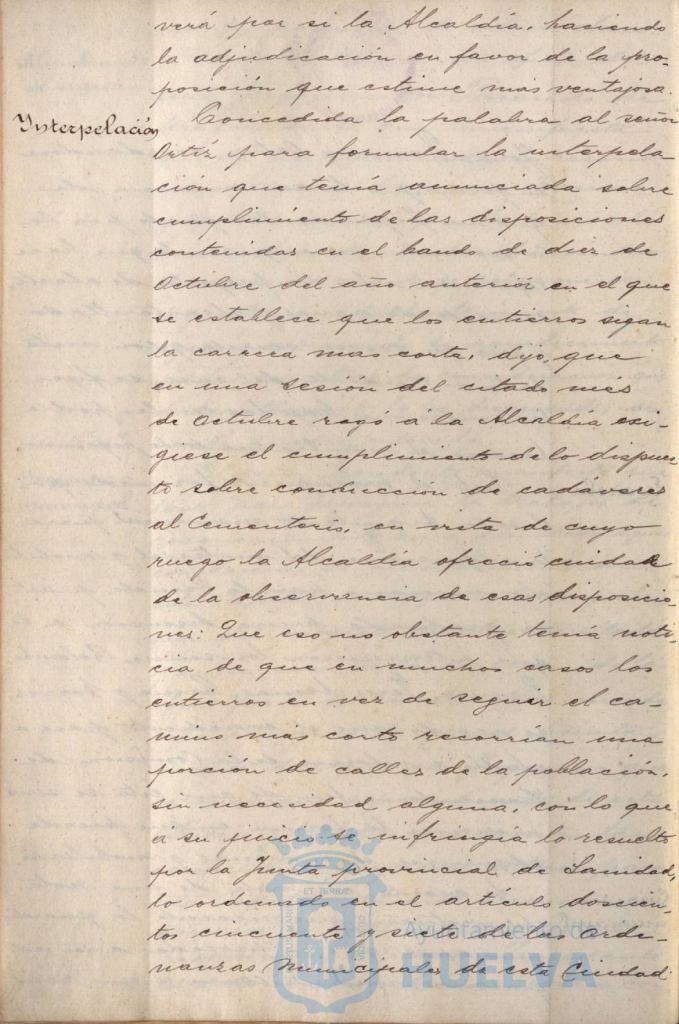 verá por si la Alcaldía, haciendo
la adjudicación en favor de la pro-
posición que estime mas ventajosa.
Interpelación
Concedida la palabra al señor
Ortiz para formular la interpela
ción que tenía anunciada sobre
cumplimiento de las disposiciones
contenidas en el bando de diez de
Octubre del año anterior en el que
se establece que los entierros sigan
la carrera mas corta, dijo, que
en una sesión del citado més
de Octubre rogó á la Alcaldía exi-
giese el cumplimiento de lo dispues
to sobre conducción de cadáveres
al Cementerio, en vista de cuyo
ruego la Alcaldía ofreció cuidar
de la observancia de esas disposicio-
nes: Que eso no obstante tenía noti-
cia de que en muchos casos los
entierros en vez de seguir el ca-
mino más corto recorrían una
porción de calles de la población,
sin necesidad alguna, con lo que
á su juicio se infringía lo resuelto
por la Junta provincial de Sanidad,
lo ordenado en el artículo doscien-
tos cincuenta y siete de las Orde-
nanzas Municipales de esta Ciudad
ET TERRÆ
Ayuntamiento de
HUELVA